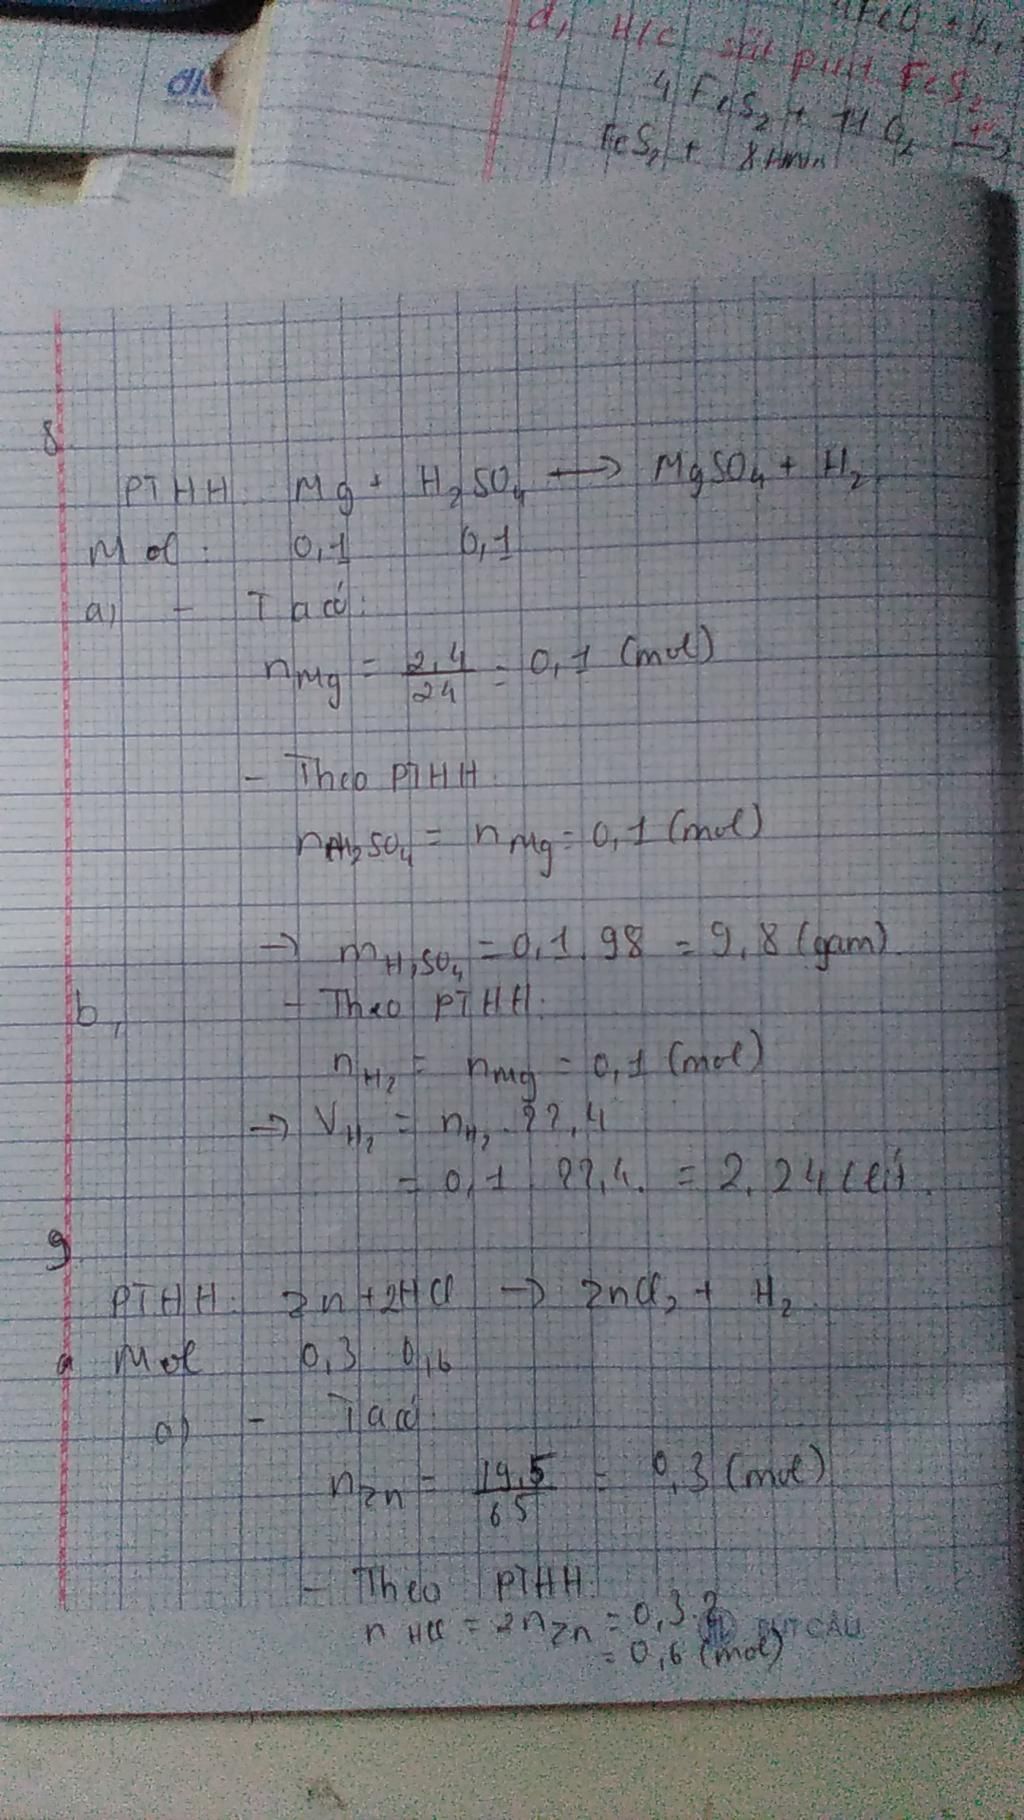 d, H/c FeS2
4 FeS2 + 11 O2 →
FeS2 +
8
PTHH Mg + H2SO4 → MgSO4 + H2
Mol: 0,1 0,1
a) - Ta có:
nMg = 2,4/24 = 0,1 (mol)
- Theo PTHH
nH2SO4 = nMg = 0,1 (mol)
→ mH2SO4 = 0,1.98 = 9,8 (gam)
b, - Theo PTHH:
nH2 = nMg = 0,1 (mol)
→ VH2 = nH2.22,4
= 0,1.22,4. = 2,24 (lít).
9
PTHH: Zn + 2HCl → ZnCl2 + H2
a Mol 0,3 0,6
a) - Ta có:
nZn = 19,5/65 = 0,3 (mol)
- Theo PTHH
nHCl = 2nZn = 0,3.2
= 0,6 (mol)